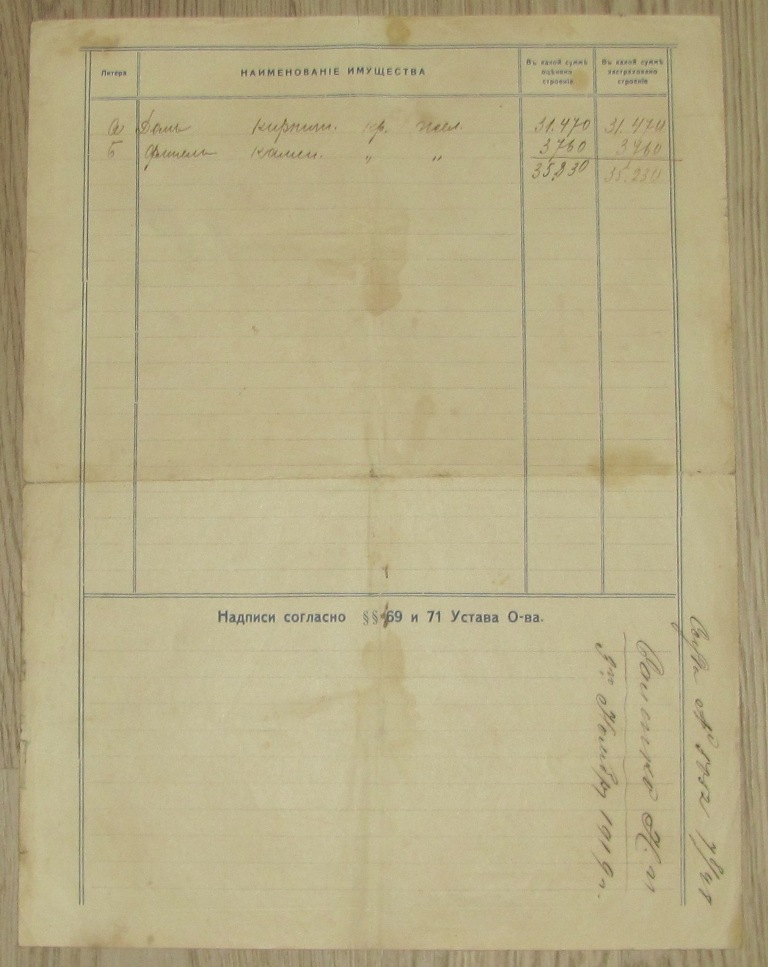 Литера
НАИМЕНОВАНІЕ ИМУЩЕСТВА
Въ какой суммѣ
оцѣнено
строеніе
Въ какой суммѣ
застраховано
строеніе
а Домъ кирпич. кр. жел. 31.470 31.470
Б Флигель камен. " " 3760 3760
35.230 35.230
Надписи согласно §§ 69 и 71 Устава О-ва.
1919 г.